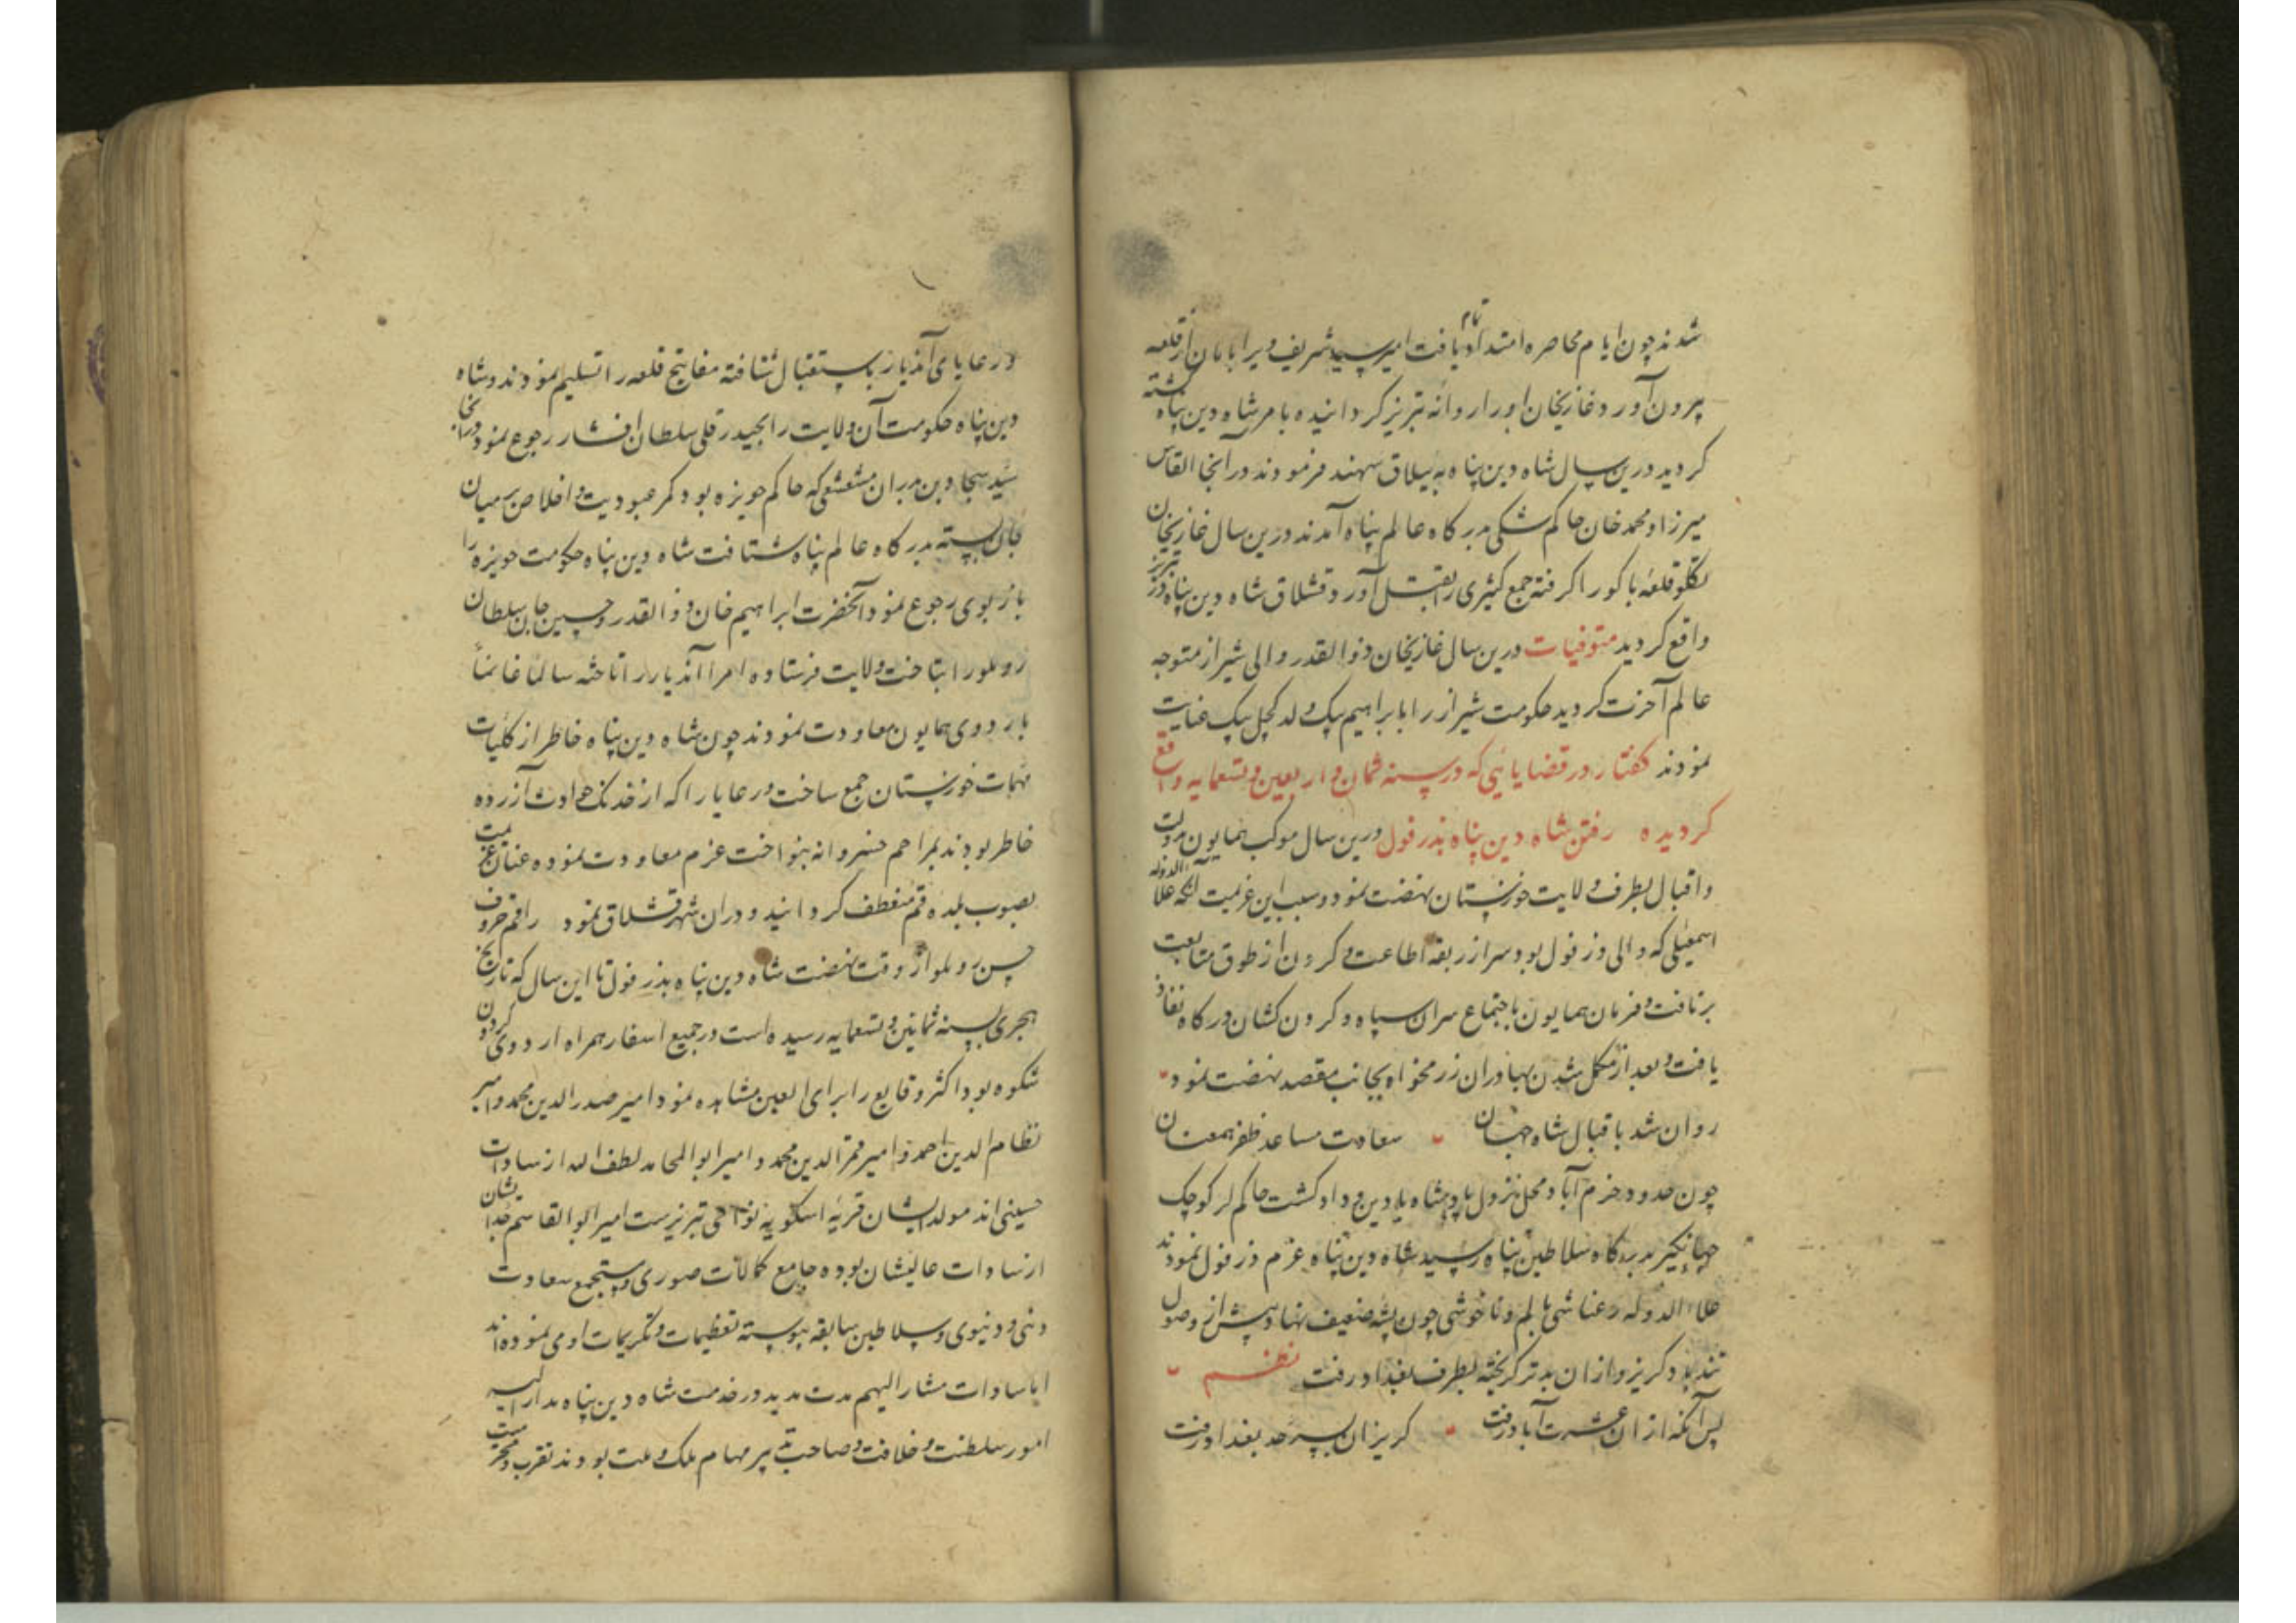 شدند چون ایام محاصره امتداد تمام یافت امیر سید شریف ویرا بامان از قلعه
بیرون آورد و غازیخان او را روانه تبریز کردانیده بامر شاه دین پناه کشته
کردید درین سال شاه دین پناه به ییلاق سهند فرمودند در آنجا القاس
میرزا و محمد خان حاکم شکی بدرکاه عالم پناه آمدند درین سال غازیخان
تکلو قلعه باکو را کرفته جمع کثیری را بقتل آورد و قشلاق شاه دین پناه در تبریز
واقع کردید متوفیات درین سال غازیخان ذوالقدر والی شیراز متوجه
عالم آخرت کردید حکومت شیراز را بابراهیم بیک ولد کچل بیک عنایت
نمودند کفتار در قضایائی که در سنه ثمان و اربعین و تسعمایه واقع
کردیده رفتن شاه دین پناه بدزفول درین سال موکب همایون بدولت
و اقبال بطرف ولایت خوزستان نهضت نمود و سبب این عزیمت آنکه علاءالدوله
اسمعیلی که والی دزفول بود سر از ربقه اطاعت و کردن از طوق متابعت
برتافت و فرمان همایون باجتماع سران سپاه و کردن کشان درکاه نفاذ
یافت و بعد از مکمل شدن بهادران رزمخواه بجانب مقصد نهضت نمود
روان شد باقبال شاه جهان سعادت مساعد ظفر همعنان
چون حدود خرم آباد محل نزول پادشاه با دین و داد کشت حاکم لر کوچک
جهانکیر بدرکاه سلاطین پناه رسید شاه دین پناه عزم دزفول نمودند
علاءالدوله رعناشی با لم و ناخوشی چون پشه ضعیف نهاد پیش از وصول
تندباد کریز و ازان بدتر کریخته بطرف بغداد رفت نظم
پس آنکه ازان عشرت آباد رفت کریزان بسرحد بغداد رفت
و رعایای آندیار باستقبال شتافته مفاتیح قلعه را تسلیم نمودند و شاه
دین پناه حکومت آن ولایت را بحیدر قلی سلطان افشار رجوع نمود و درانجا
سید سجاد بن بدران مشعشعی که حاکم حویزه بود کمر عبودیت و اخلاص بر میان
جان بسته بدرکاه عالم پناه شتافت شاه دین پناه حکومت حویزه را
باز بوی رجوع نمود آنحضرت ابراهیم خان ذوالقدر و حسین جان سلطان
روملو را بتاخت ولایت فرستاده امرا آندیار را تاخته سالماً غانماً
باردوی همایون معاودت نمودند چون شاه دین پناه خاطر از کلیات
مهمات خوزستان جمع ساخت و رعایا را که از خدنک حوادث آزرده
خاطر بودند بمراحم خسروانه بنواخت عزم معاودت نموده عنان عزیمت
بصوب بلده قم منعطف کردانید و دران شهر قشلاق نمود راقم حروف
حسن روملو از وقت نهضت شاه دین پناه بدزفول تا این سال که تاریخ
هجری بسنه ثمانین و تسعمایه رسیده است در جمیع اسفار همراه اردوی کردون
شکوه بود و اکثر وقایع را برای العین مشاهده نمود امیر صدرالدین محمد و امیر
نظام الدین احمد و امیر قمر الدین محمد و امیر ابو المحامد لطف الله از سادات
حسینی اند مولد ایشان قریه اسکویه نواحی تبریزست امیر ابو القاسم جد ایشان
از سادات عالیشان بوده جامع کمالات صوری و مستجمع سعادت
دینی و دنیوی و سلاطین سابقه پیوسته تعظیمات و تکریمات او می نموده اند
اما سادات مشار الیهم مدت مدید در خدمت شاه دین پناه مدار الیه
امور سلطنت و خلافت و صاحب تدبیر مهام ملک و ملت بودند تقرب و محرمیت